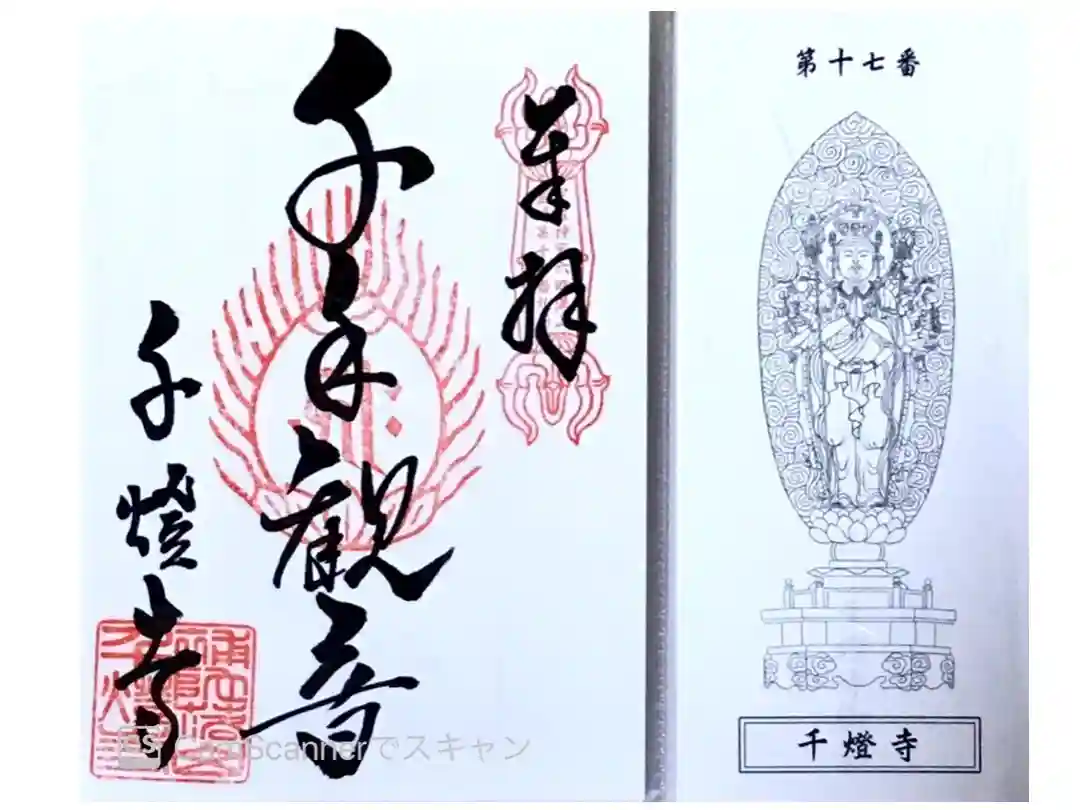 奉拝
千手観音
千燈寺
第十七番
千燈寺
CamScannerでスキャン